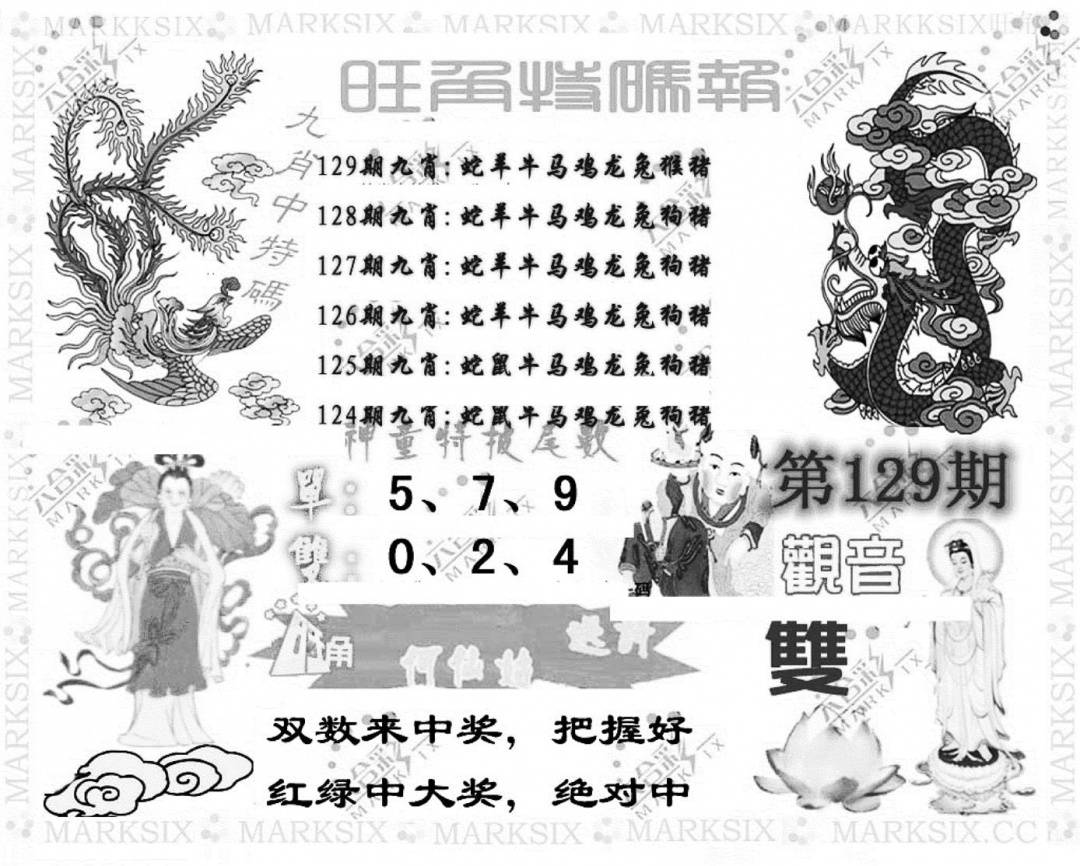 MARKSIX MARKKSIX MARKSIX MARKSIX MARKKSIX
旺角特碼報
九肖中特碼
129期九肖:蛇羊牛马鸡龙兔猴猪
128期九肖:蛇羊牛马鸡龙兔狗猪
127期九肖:蛇羊牛马鸡龙兔狗猪
126期九肖:蛇羊牛马鸡龙兔狗猪
125期九肖:蛇鼠牛马鸡龙兔狗猪
124期九肖:蛇鼠牛马鸡龙兔狗猪
神童特报尾数
單:5、7、9
雙:0、2、4
第129期
觀音
雙
旺角
何仙姑
双数来中奖，把握好
红绿中大奖，绝对中
MARKSIX MARKSIX MARKSIX MARKSIX MARKSIX.CC